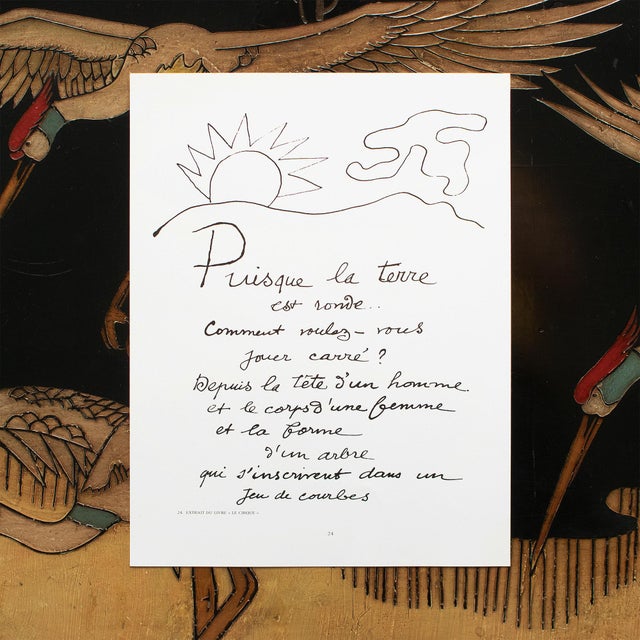 Puisque la terre
est ronde..
Comment voulez-vous
jouer carré ?
Depuis la tête d'un homme
et le corps d'une femme
et la forme
d'un arbre
qui s'inscrivent dans un
jeu de courbes
24. EXTRAIT DU LIVRE « LE CIRQUE »
24